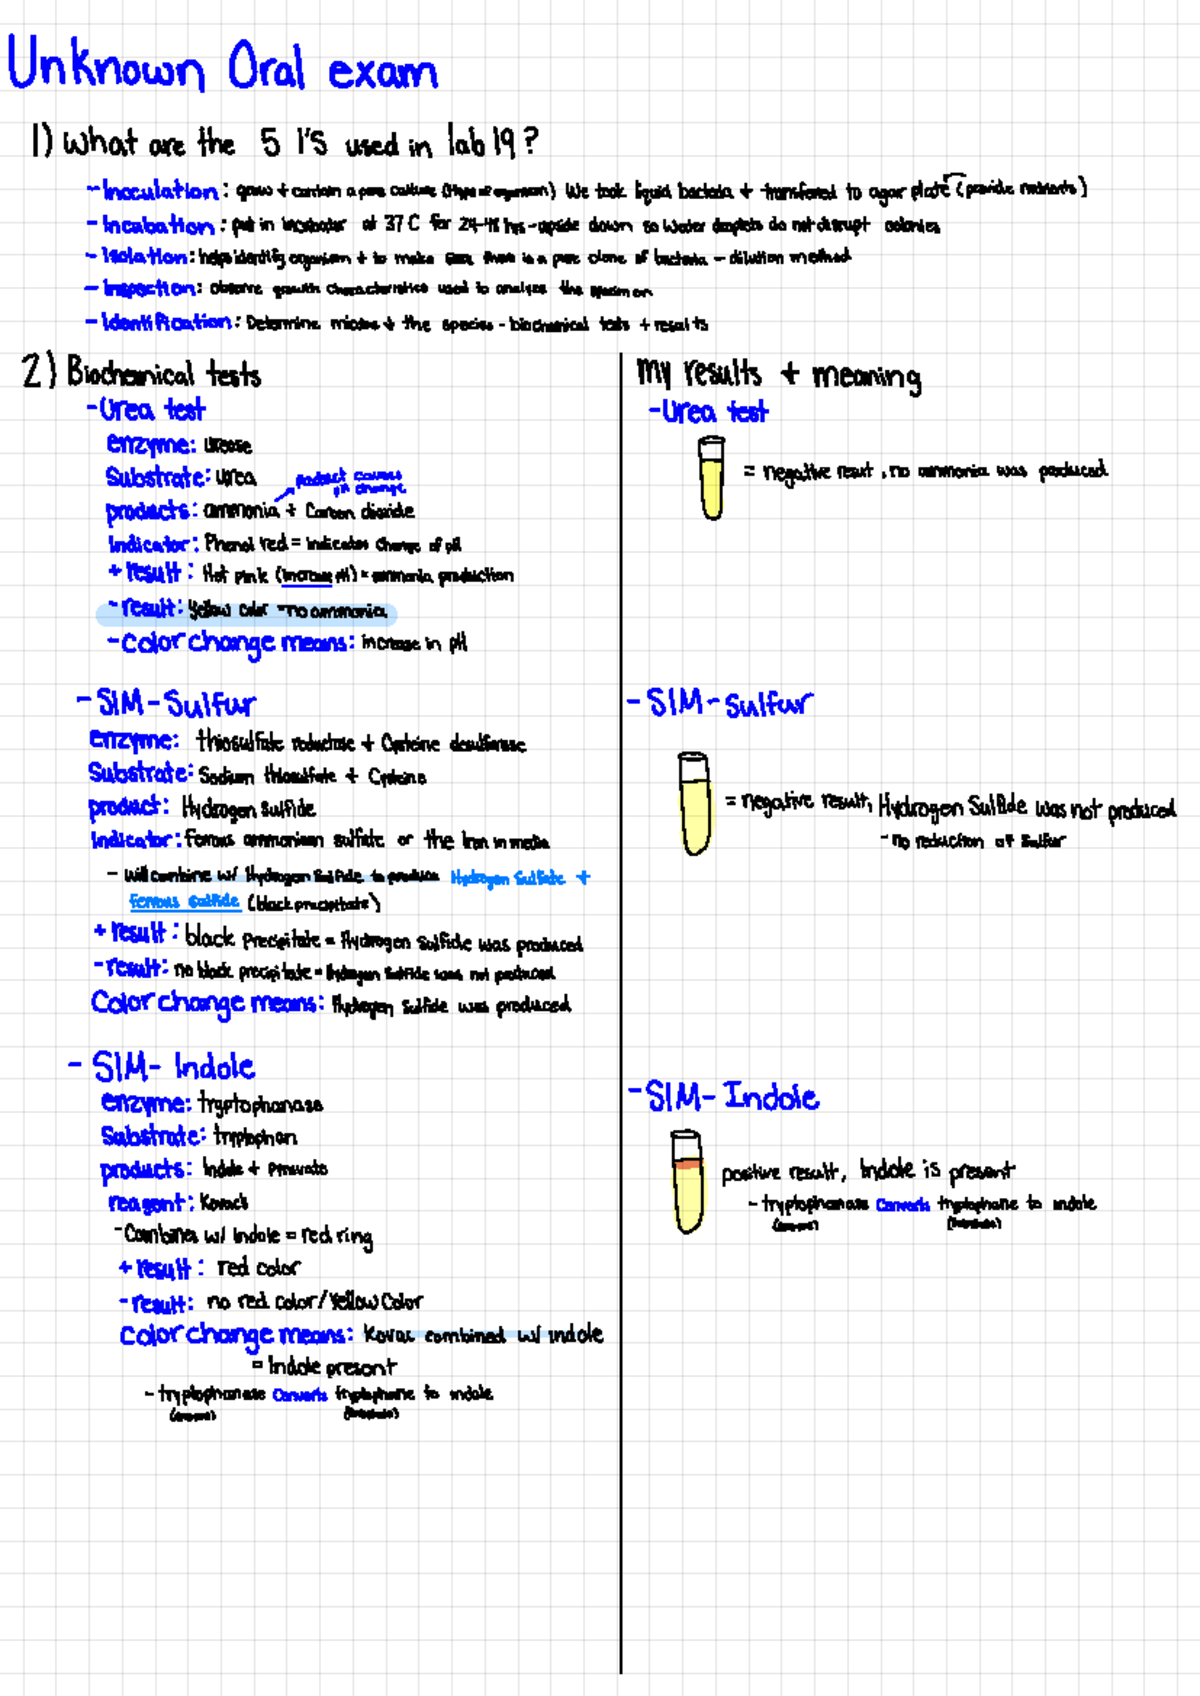 Unknown Oral exam
1) What are the 5 I's used in lab 19?
- Inoculation: grow + contain a pure culture (type of organism) We took liquid bacteria + transfered to agar plate (provide nutrients)
- Incubation: put in incubator at 37 C for 24-48 hrs - upside down so water droplets do not disrupt colonies
- Isolation: helps identify organism + to make sure there is a pure clone of bacteria - dilution method
- Inspection: observe growth characteristics used to analyze the specimen
- Identification: Determine the species - biochemical tests + results
2) Biochemical tests
- Urea test
enzyme: urease
Substrate: urea
product causes
pH change
products: ammonia + Carbon dioxide
Indicator: Phenol red = indicates change of pH
+ result: Hot pink (increase pH) = ammonia production
- result: Yellow color = no ammonia
- Color change means: increase in pH
- SIM - Sulfur
enzyme: thiosulfate reductase + Cysteine desulfurase
Substrate: Sodium thiosulfate + Cysteine
product: Hydrogen Sulfide
Indicator: ferrous ammonium sulfate or the Iron in media
- will combine w/ Hydrogen Sulfide to produce Hydrogen Sulfate +
ferrous sulfide (black precipitate)
+ result: black precipitate = Hydrogen Sulfide was produced
- result: no black precipitate = Hydrogen Sulfide was not produced
Color change means: Hydrogen Sulfide was produced
- SIM - Indole
enzyme: tryptophanase
Substrate: tryptophan
products: Indole + Pyruvate
reagent: Kovac's
- Combines w/ indole = red ring
+ result: red color
- result: no red color/Yellow Color
Color change means: Kovac combined w/ indole
= Indole present
- tryptophanase Converts tryptophane to indole
(enzyme) (substrate)
my results + meaning
- Urea test
= negative result, no ammonia was produced
- SIM - sulfur
= negative result, Hydrogen Sulfide was not produced
- no reduction of Sulfur
- SIM - Indole
positive result, Indole is present
- tryptophanase Converts tryptophane to indole
(enzyme) (substrate)